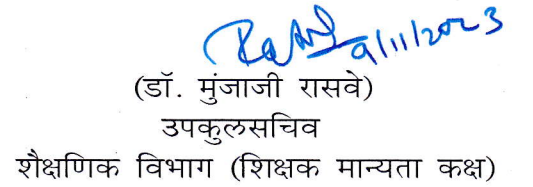 9/11/2023
(डॉ. मुंजाजी रासवे)
उपकुलसचिव
शैक्षणिक विभाग (शिक्षक मान्यता कक्ष)